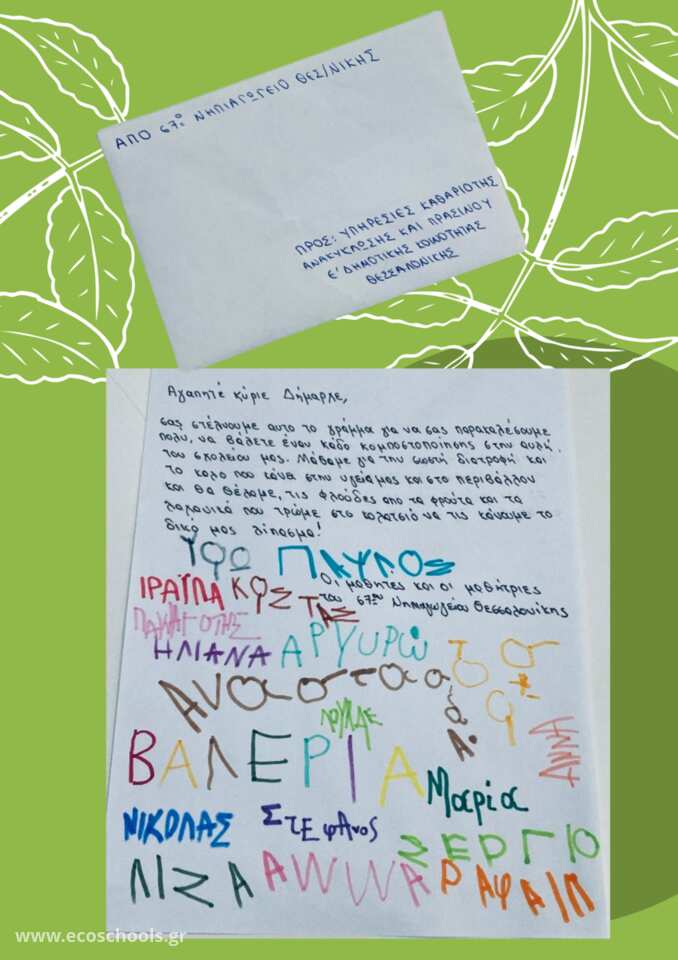 ΑΠΟ 67ο ΝΗΠΙΑΓΩΓΕΙΟ ΘΕΣ/ΝΙΚΗΣ
ΠΡΟΣ: ΥΠΗΡΕΣΙΕΣ ΚΑΘΑΡΙΟΤΗΣ
ΑΝΑΚΥΚΛΩΣΗΣ ΚΑΙ ΠΡΑΣΙΝΟΥ
Ε' ΔΗΜΟΤΙΚΗΣ ΚΟΙΝΟΤΗΤΑΣ
ΘΕΣΣΑΛΟΝΙΚΗΣ
Αγαπητέ κύριε Δήμαρχε,
σας στέλνουμε αυτο το γράμμα για να σας παρακαλέσουμε
πολυ, να βάλετε έναν κάδο κομποστοποίησης στην αυλή
του σχολείου μας. Μάθαμε για την σωστή διατροφή και
το καλο που κάνει στην υγεία μας και στο περιβάλλον
και θα θέλαμε, τις φλούδες απο τα φρούτα και τα
λαχανικά που τρώμε στο κολατσιό να τις κάνουμε το
δικό μας λίπασμα!
ΠΑΥΛΟΣ
Οι μαθητες και οι μαθήτριες
του 67ου Νηπιαγωγείου Θεσσαλονίκης
ΙΡΑΪΠΑ ΚΩΣ ΤΑΣ
ΠΑΝΑΓΟΤΗΣ
ΗΛΙΑΝΑ ΑΡΓΥΡΩ
Αναστασ
ΒΑΛΕΡΙΑ
ΑΝΝΑ
Μαρία
ΝΙΚΟΛΑΣ
ΣΤΕφΑΝΟΣ
ΣΕΡΓΙΟ
ΛΙΖΑ
ΡΑΦΑΗΛ
www.ecoschools.gr